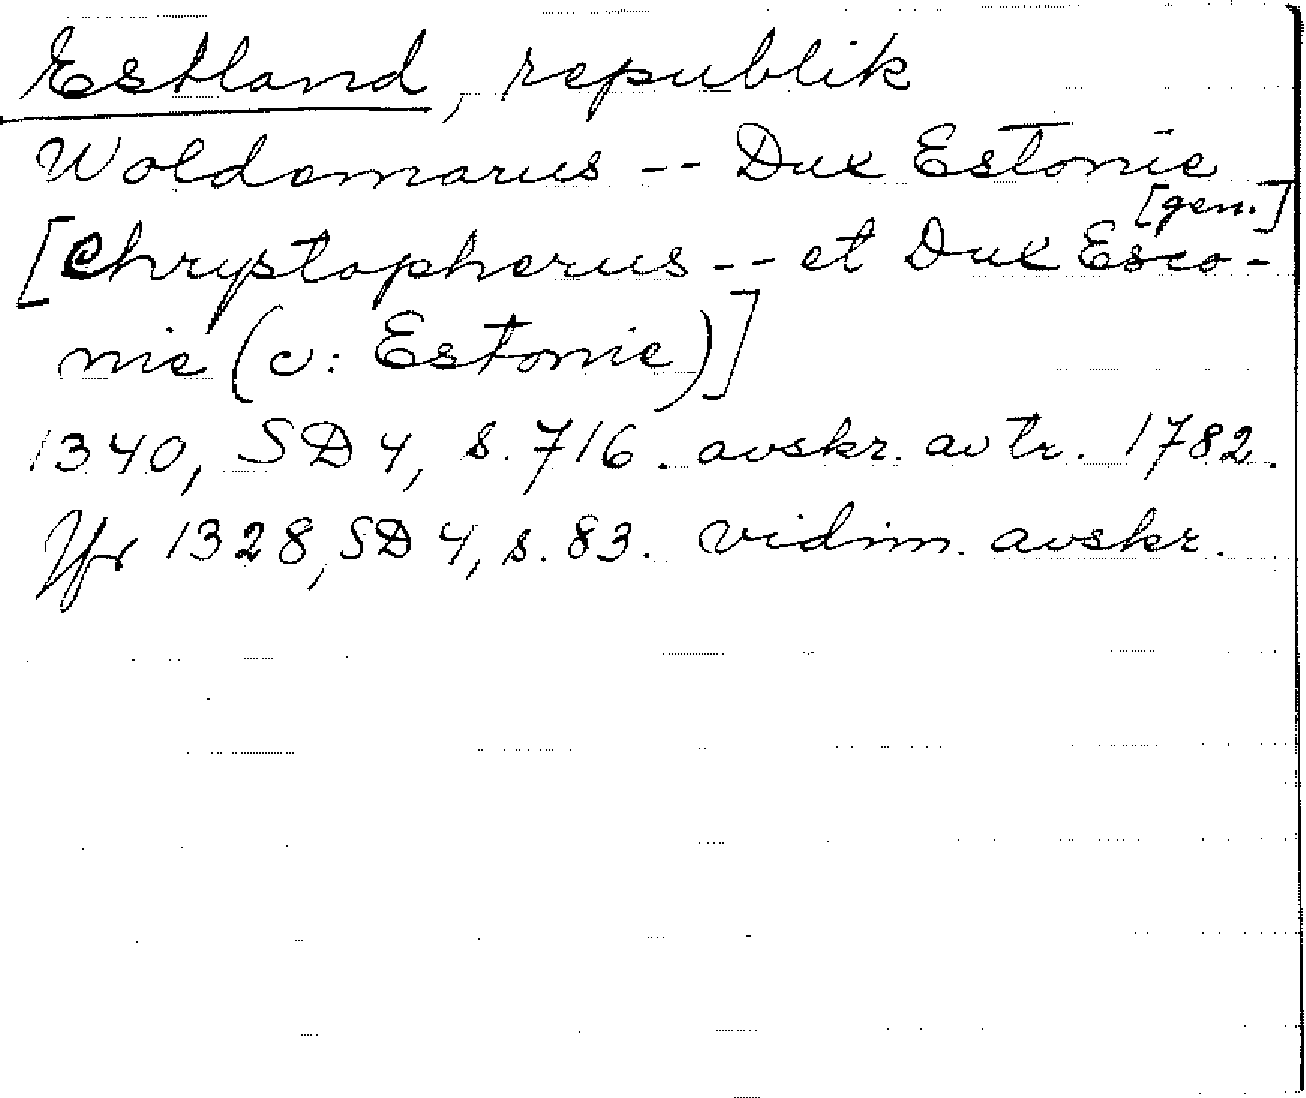 Estland, republik
Woldemarus -- Dux Estonie
[gen.]
[Chrystopherus -- et Dux Esco-
nie (v: Estonie)]
1340, SD 4, s. 716. avskr. av tr. 1782.
Jfr 1328, SD 4, s. 83. vidim. avskr.